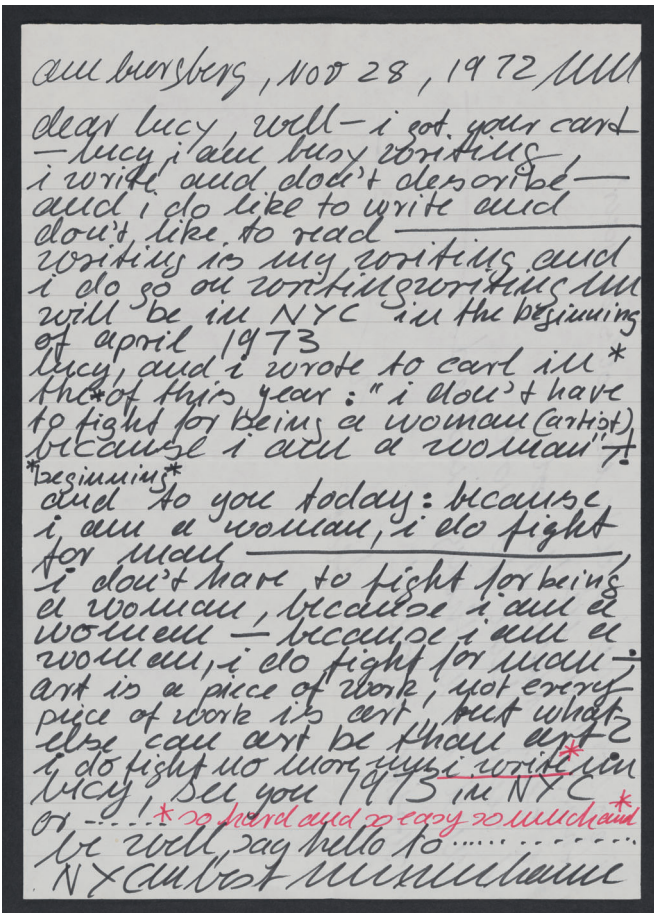 am burgberg, NOV 28, 1972
dear lucy, well – i got your cart
– lucy i am busy writing,
i write and don't describe —
and i do like to write and
don't like to read —
writing is my writing and
i do go on writingwriting
will be in NYC in the beginning
of april 1973
lucy, and i wrote to carl in *
the * of this year: "i don't have
to fight for being a woman (artist)
because i am a woman" – !
*beginning*
and to you today: because
i am a woman, i do fight
for man —,
i don't have to fight for being
a woman, because i am a
woman – because i am a
woman, i do fight for man – ;
art is a piece of work, not every
piece of work is art, but what
else can art be than art?
i do fight no more i write *
lucy, see you 1973 in NYC *
or ...... * so hard and so easy so much and
be well, say hello to ............
NYC best hanne